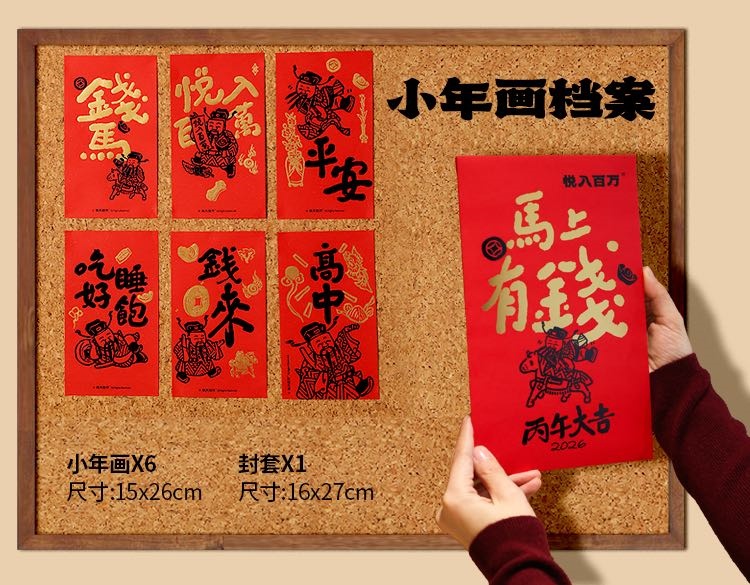 小年画档案
錢
馬
悦入
百萬
平安
吃好
睡飽
錢來
高中
悦入百万
馬上
有錢
丙午大吉
2026
小年画X6
尺寸:15x26cm
封套X1
尺寸:16x27cm